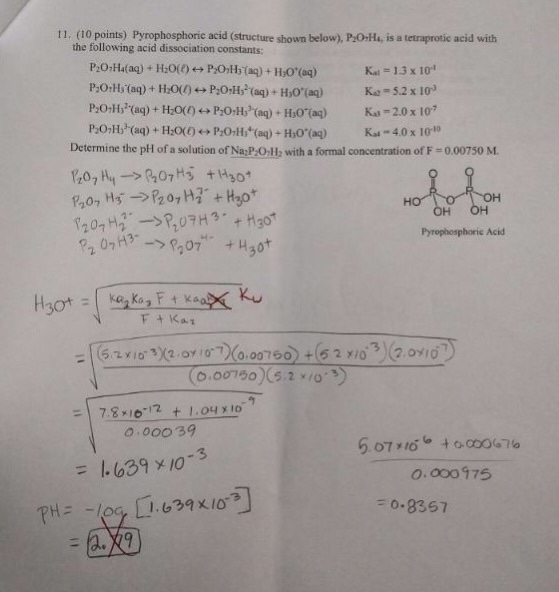 11. (10 points) Pyrophosphoric acid (structure shown below), P₂O₇H₄, is a tetraprotic acid with
the following acid dissociation constants:
P₂O₇H₄(aq) + H₂O(ℓ) ↔ P₂O₇H₃⁻(aq) + H₃O⁺(aq) Kₐ₁ = 1.3 x 10⁻¹
P₂O₇H₃⁻(aq) + H₂O(ℓ) ↔ P₂O₇H₂²⁻(aq) + H₃O⁺(aq) Kₐ₂ = 5.2 x 10⁻³
P₂O₇H₂²⁻(aq) + H₂O(ℓ) ↔ P₂O₇H³⁻(aq) + H₃O⁺(aq) Kₐ₃ = 2.0 x 10⁻⁷
P₂O₇H³⁻(aq) + H₂O(ℓ) ↔ P₂O₇⁴⁻(aq) + H₃O⁺(aq) Kₐ₄ = 4.0 x 10⁻¹⁰
Determine the pH of a solution of Na₂P₂O₇H₂ with a formal concentration of F = 0.00750 M.
P₂O₇H₄ → P₂O₇H₃⁻ + H₃O⁺
P₂O₇H₃⁻ → P₂O₇H₂²⁻ + H₃O⁺
P₂O₇H₂²⁻ → P₂O₇H³⁻ + H₃O⁺
P₂O₇H³⁻ → P₂O₇⁴⁻ + H₃O⁺
O O
HO O OH
OH OH
Pyrophosphoric Acid
H₃O⁺ = √ Ka₂ Ka₃ F + Ka₂ Kw
F + Ka₂
= √ (5.2×10⁻³)(2.0×10⁻⁷)(0.00750) + (5.2×10⁻³)(2.0×10⁻⁷)
(0.00750)(5.2×10⁻³)
= √ 7.8×10⁻¹² + 1.04×10⁻⁹
0.00039
= 1.639×10⁻³
PH = -log [1.639×10⁻³]
= 2.79
5.07×10⁻⁶ + 0.000676
0.000975
= 0.8357